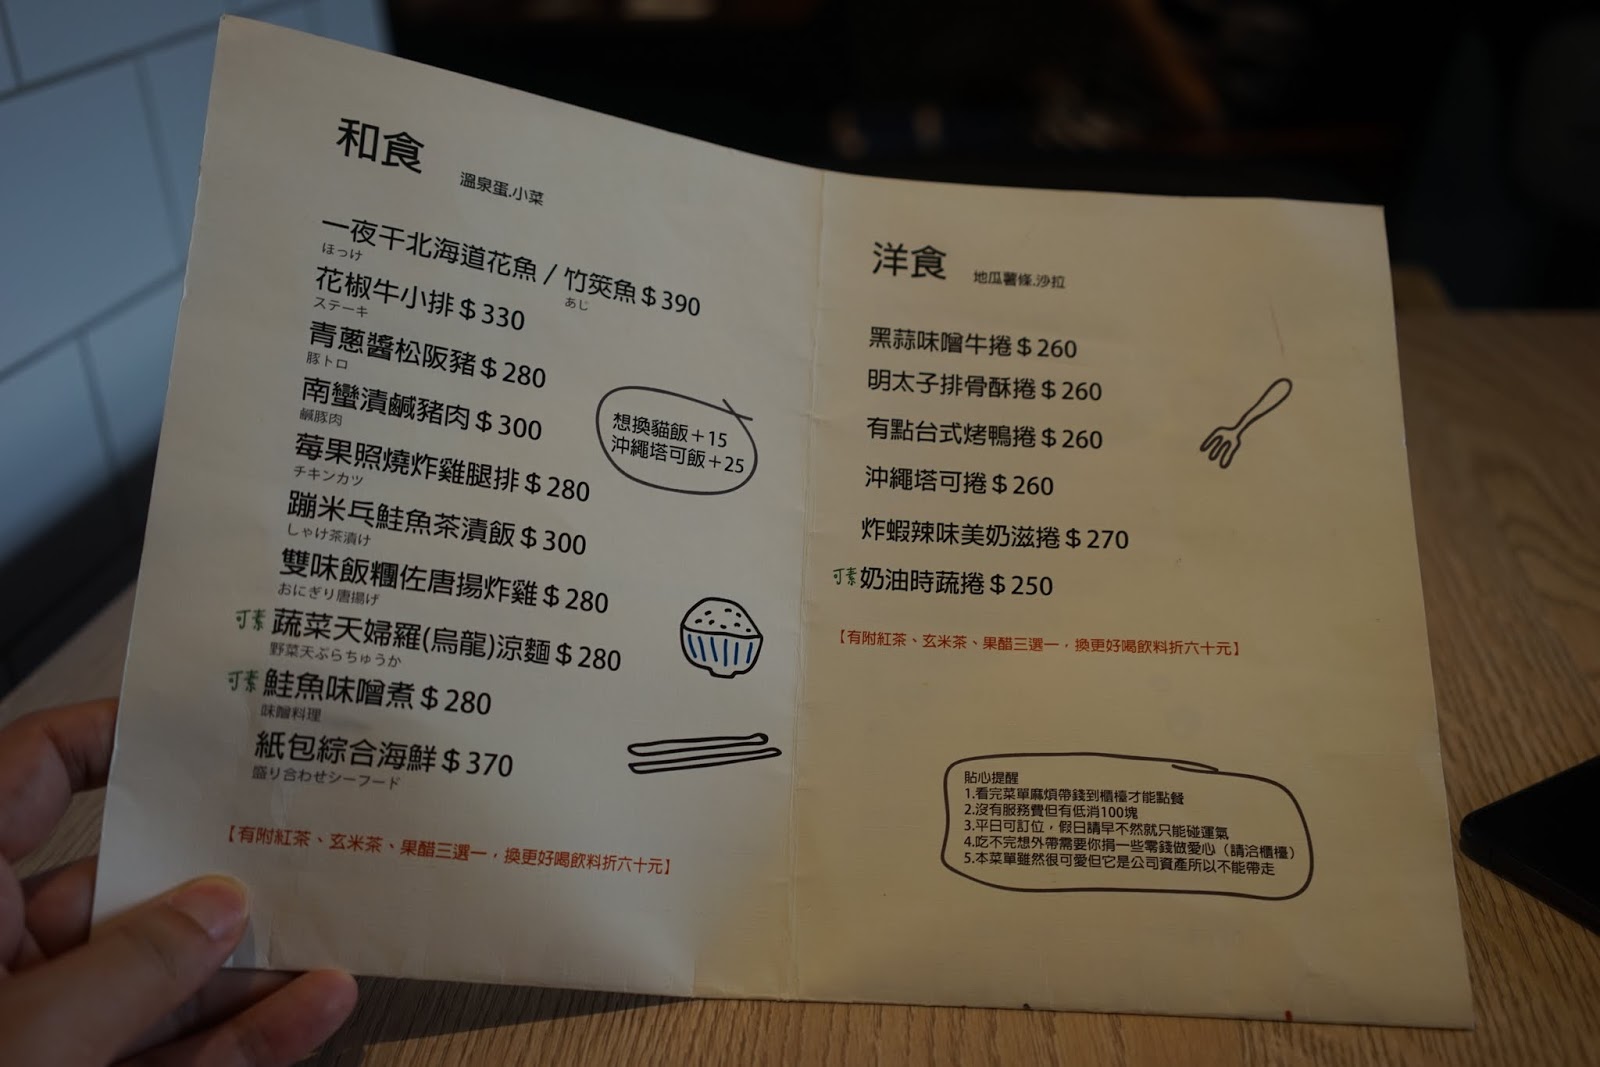 和食
溫泉蛋.小菜
一夜干北海道花魚 / 竹筴魚 $ 390
ほっけ
あじ
花椒牛小排 $ 330
ステーキ
青蔥醬松阪豬 $ 280
豚トロ
南蠻漬鹹豬肉 $ 300
鹹豚肉
莓果照燒炸雞腿排 $ 280
チキンカツ
蹦米乓鮭魚茶漬飯 $ 300
しゃけ茶漬け
雙味飯糰佐唐揚炸雞 $ 280
おにぎり唐揚げ
可素 蔬菜天婦羅(烏龍)涼麵 $ 280
野菜天ぷらちゅうか
可素 鮭魚味噌煮 $ 280
味噌料理
紙包綜合海鮮 $ 370
盛り合わせシーフード
【有附紅茶、玄米茶、果醋三選一，換更好喝飲料折六十元】
想換貓飯＋15
沖繩塔可飯＋25
洋食
地瓜薯條.沙拉
黑蒜味噌牛捲 $ 260
明太子排骨酥捲 $ 260
有點台式烤鴨捲 $ 260
沖繩塔可捲 $ 260
炸蝦辣味美奶滋捲 $ 270
可素 奶油時蔬捲 $ 250
【有附紅茶、玄米茶、果醋三選一，換更好喝飲料折六十元】
貼心提醒
1.看完菜單麻煩帶錢到櫃檯才能點餐
2.沒有服務費但有低消100塊
3.平日可訂位，假日請早不然就只能碰運氣
4.吃不完想外帶需要你捐一些零錢做愛心（請洽櫃檯）
5.本菜單雖然很可愛但它是公司資產所以不能帶走